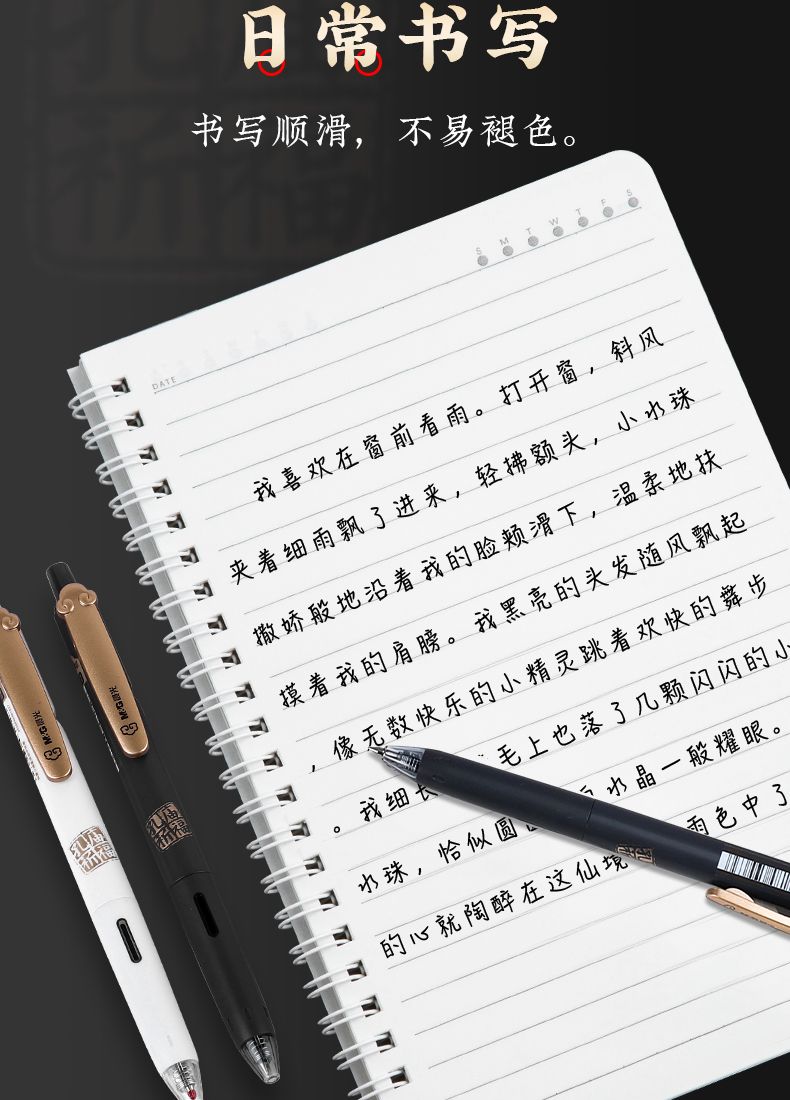 日常书写
书写顺滑，不易褪色。
S M T W T F S
DATE
我喜欢在窗前看雨。打开窗，斜风
夹着细雨飘了进来，轻拂额头，小水珠
撒娇般地沿着我的脸颊滑下，温柔地扶
摸着我的肩膀。我黑亮的头发随风飘起
，像无数快乐的小精灵跳着欢快的舞步
。我细长 毛上也落了几颗闪闪的小
水珠，恰似圆 水晶一般耀眼。
的心就陶醉在这仙境 雨色中了
M&G 晨光
孔庙祈福
M&G 晨光
孔庙祈福